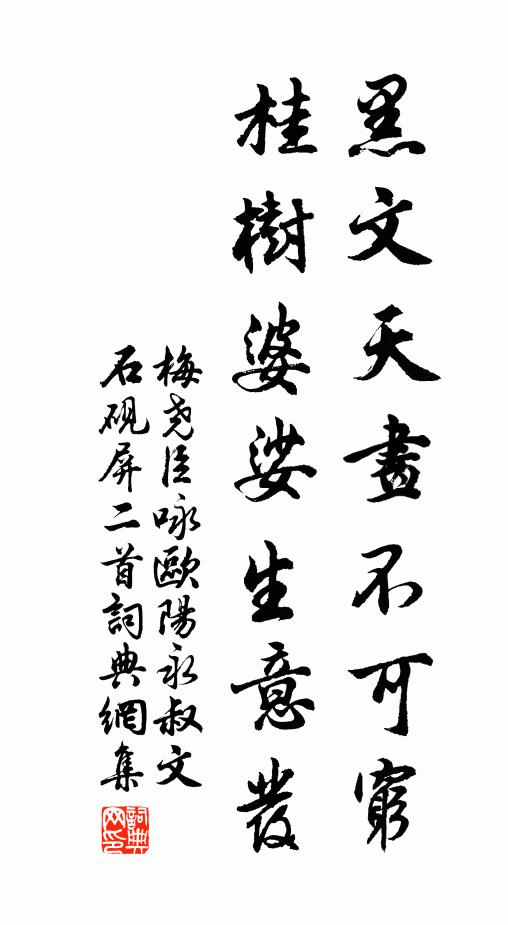 黑文天畫不可窮
桂樹婆娑生意發
梅尧臣咏歐陽永叔文
石硯屏二首詞典網集
詞典网印